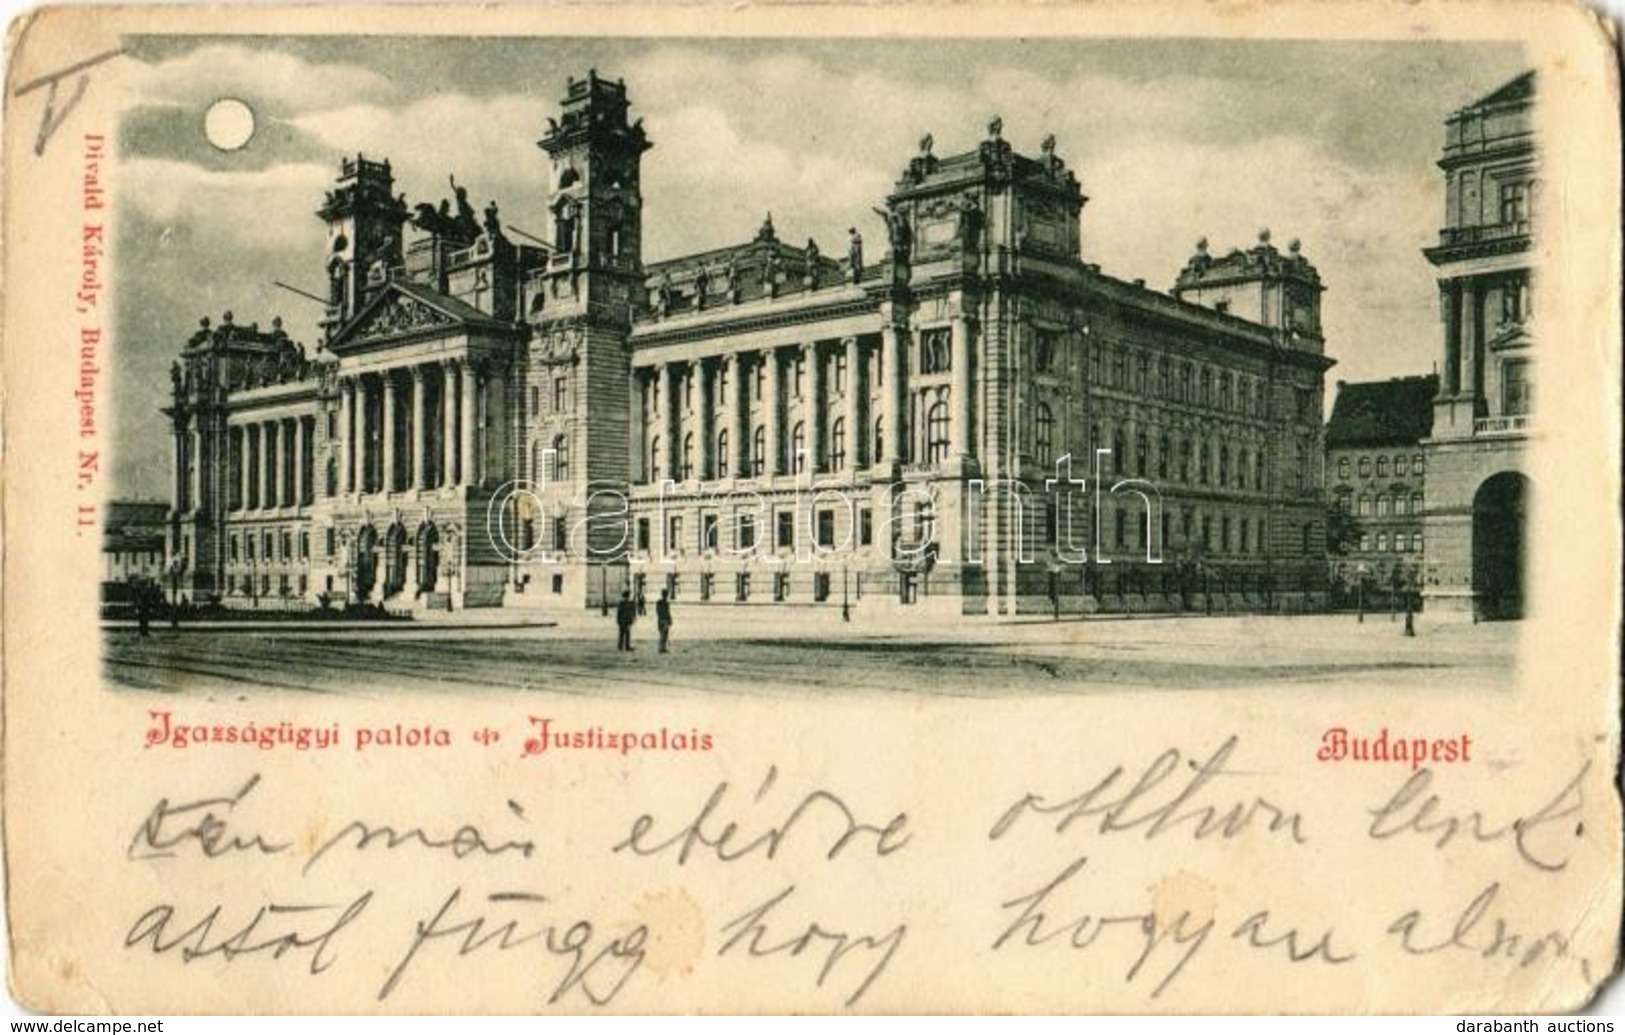 Divald Károly, Budapest Nr. 11.
darabanth
Igazságügyi palota Justizpalais
Budapest
tán már ebédre otthon lenk.
attól függ hogy hogyan alszom
www.delcampe.net
darabanth auctions